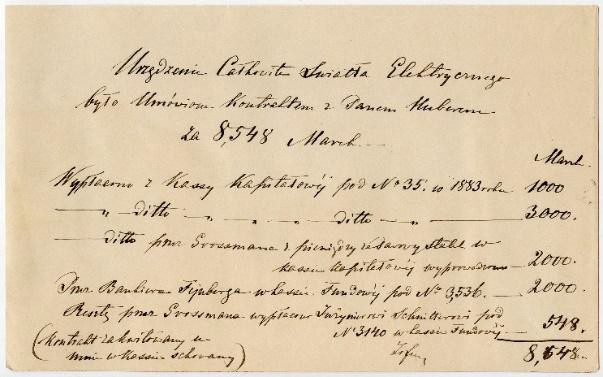 Urządzenie Całkowite Światła Elektrycznego
było Umówione Kontraktem z Panem Huberem
za 8,548 March
March
Wypłacono z Kassy Kapitałowej pod No 35. w 1883 roku 1000
— " — ditto — " — " — " — ditto — " — 3000.
— ditto przez Grossmana z pieniędzy za stal w
kassie Kapitałowej — 2000.
Przez Bankiera w kassie Fundowej pod No 3,536. — 2000.
Resztę przez Grossmana wypłacono Inżynierowi pod
No 3140 w kassie Fundowej — 548.
(Kontrakt zakwitowany u
mnie w kassie schowany)
8,548.